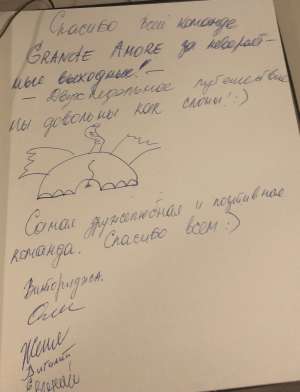 Спасибо всей команде
GRANDE AMORE за невероят-
ные выходные! –
– Двухнедельное путешествие
мы довольны как слоны! :)
Самая дружелюбная и позитивная
команда. Спасибо всем :)
Оля
Женя
Виталий